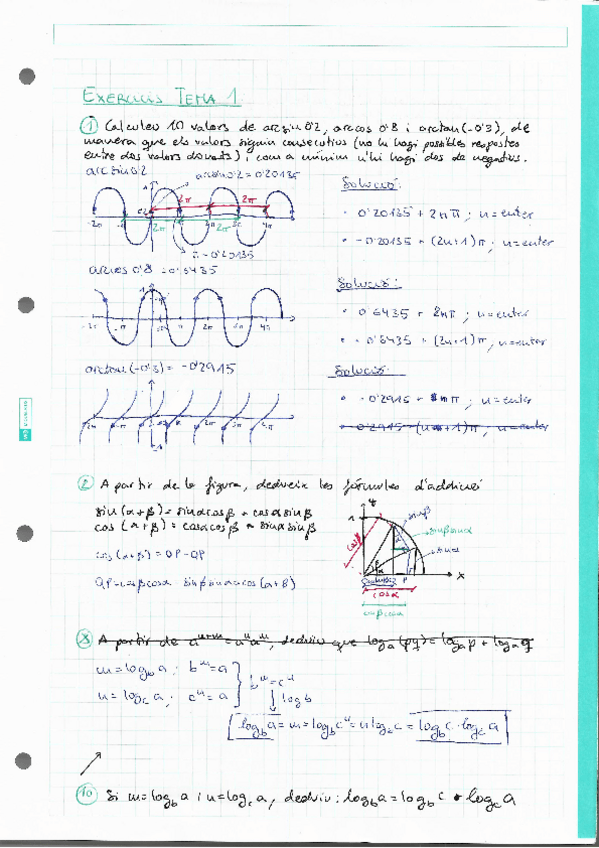 EXERCICIS TEMA 1
① Calculeu 10 valors de arcsin 0'2, arccos 0'8 i arctan(-0'3), de
manera que els valors siguin consecutius (no hi hagi possibles respostes
entre dos valors donats) i com a mínim n'hi hagi dos de negatius.
arcsin 0'2
arcsin 0'2 = 0'20135
Solució:
2π
2π
2π
-2π -π π 2π 3π 4π
π - 0'20135
• 0'20135 + 2nπ ; n=enter
• -0'20135 + (2n+1)π ; n=enter
arccos 0'8 = 0'6435
Solució:
-2π -π π 2π 3π 4π
• 0'6435 + 2nπ ; n=enter
• -0'6435 + (2n+1)π ; n=enter
arctan(-0'3) = -0'2915
Solució:
-2π -π π 2π 3π 4π
• -0'2915 + nπ ; n=enter
• 0'2915 + (n+1)π ; n=enter
② A partir de la figura, dedueix les fórmules d'addició
sin(α+β) = sinα cosβ + cosα sinβ
cos(α+β) = cosα cosβ + sinα sinβ
cos(α+β) = OP - QP
QP = cosβ cosα - sinβ sinα = cos(α+β)
y
1
sinβ
sinβ sinα
cosβ
sinα
x
cosα
cosβ cosα
A partir de a^(n+m) = a^n a^m, deduiu que log_a(pq) = log_a p + log_a q
m = log_b a ; b^m = a
n = log_c a ; c^n = a
b^m = c^n
log b
log_b a = m = log_b c^n = n log_b c = log_b c · log_c a
⑩ Si m = log_b a i n = log_c a, deduiu: log_b a = log_b c · log_c a